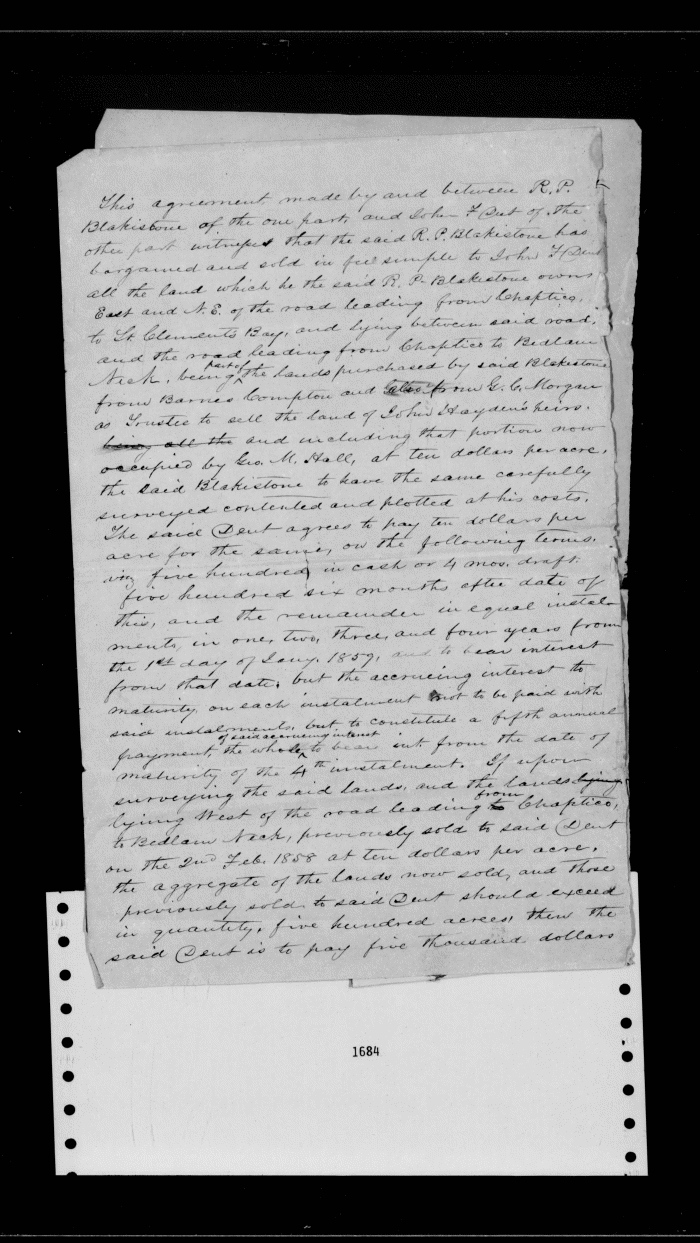 This agreement made by and between R. P.
Blakistone of the one part, and John F Dent of the
other part witness that the said R. P. Blakistone has
bargained and sold in fee simple to John F Dent
all the land which he the said R. P. Blakistone owns
East and N. E. of the road leading from Chaptico,
to St. Clements Bay, and lying between said road,
and the road leading from Chaptico to Bedlam
Neck, being part of the lands purchased by said Blakistone
from Barnes Compton and also from G. C. Morgan
as Trustee to sell the land of John Hayden's heirs.
being all the and including that portion now
occupied by Geo. M. Hall, at ten dollars per acre,
the said Blakistone to have the same carefully
surveyed contented and plotted at his costs.
The said Dent agrees to pay ten dollars per
acre for the same, on the following terms,
viz five hundred in cash or 4 mos. draft.
five hundred six months after date of
this, and the remainder in equal instal-
ments, in one, two, three, and four years from
the 1st day of Jany. 1859, and to bear interest
from that date; but the accrueing interest to
maturity on each instalment not to be paid with
said instalments, but to constitute a fifth annual
payment, the whole of said accrueing interest to bear int. from the date of
maturity of the 4th instalment. If upon
surveying the said lands, and the lands lying
lying West of the road leading from to Chaptico,
to Bedlam Neck, previously sold to said Dent
on the 2nd Feb. 1858 at ten dollars per acre,
the aggregate of the lands now sold, and those
previously sold to said Dent should exceed
in quantity, five hundred acres, then the
said Dent is to pay five thousand dollars
1684